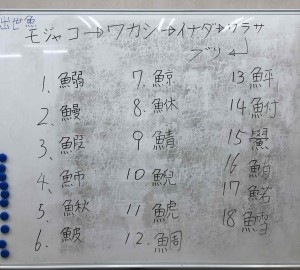 出世魚
モジャコ→ワカシ→イナダ→ワラサ
ブリ
1. 鰯
2. 鰻
3. 鰕
4. 魳
5. 鰍
6. 鮍
7. 鯨
8. 鮴
9 鯖
10 鯢
11. 鯱
12. 鯛
13 鮃
14 鮒
15
16 鮊
17 鰙
18 鱈